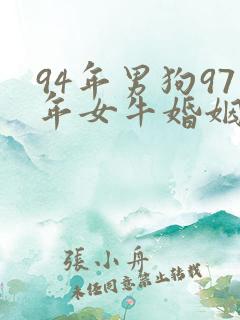 94年男狗97
年女牛婚姻
張小舟
未经同意禁止转载